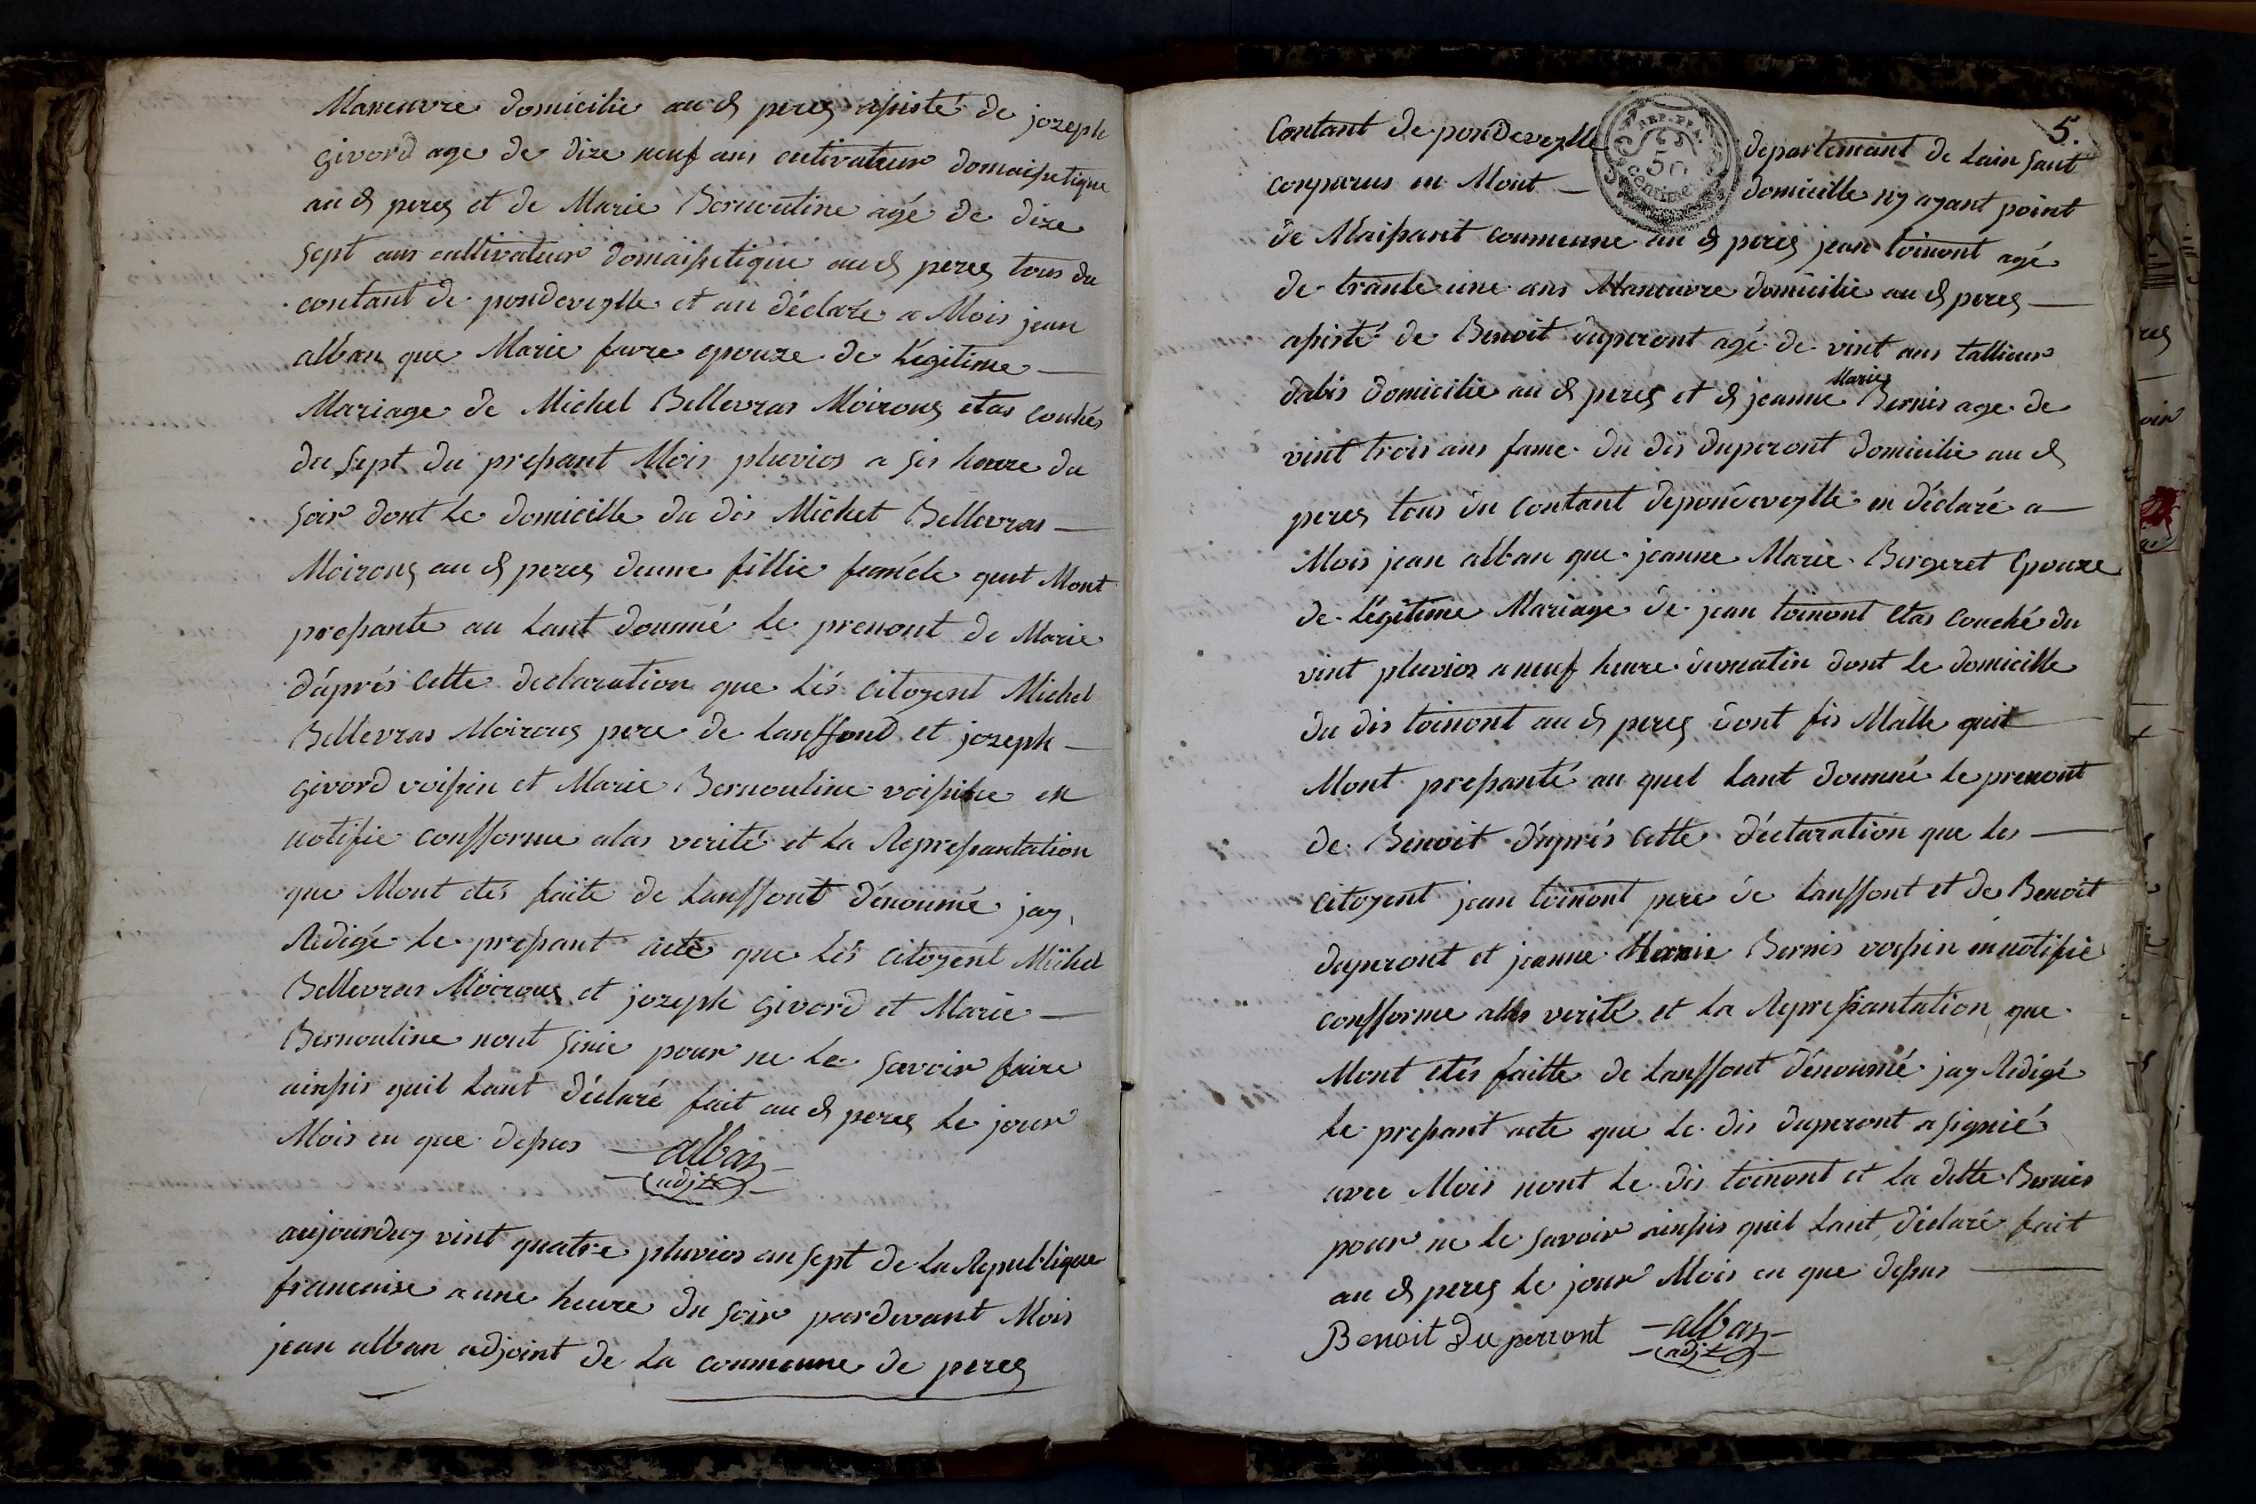 Maneuvre domicilie au d peres assisté de jozeph
givord age de dize neuf ans cultivateur domaissetique
au d peres et de Marie Bernoutine agé de dize
sept ans cultivateur domaissetique au d peres tous du
contant de pondeveylle et an déclaré a Mois jean
alban que Marie favre epouze de Légitime
Mariage de Michel Bellevras Moiroug etas couhés
du sept du pressant Mois pluvios a sis heure du
soir dont le domicille du dis Michet Bellevras
Moiroug au d peres deune fillie femèle quit Mont
pressante au Lant dounné le prenont de Marie
d'après cette declaration que lés citoyent Michel
Bellevras Moiroug pere de Lanffond et jozeph
givord voissin et Marie Bernouline voissine en
notifie confforme alas verité et la Repressantation
que Mont etés faite de Lanffont dénoumé jay
Redigé le pressant acte que lés citoyent Michel
Bellevras Moiroug et jozeph givord et Marie
Bernouline nont sinie pour ne le savoir faire
ainssis quil Lant déclaré fait au d peres le jour
Mois en que dessus alban
adjt
aujourduy vint quatre pluvios an sept de la Republique
francaise a une heure du soir pardevant Mois
jean alban adjoint de la coumeune de peres
5.
Contant de pondeveylle departemant de Lain sant
REP. FRA.
50
centime
conparus en Mont domicille ny ayant point
de Maissant coumeune au d peres jean toinont agé
de trante une ans Maneuvre domicilie au d peres
assisté de Benoit duperont agé de vint ans tallieur
dabis domicilie au d peres et d jeanne Marie Bernis age de
vint trois ans fame du dis duperont domicilie au d
peres tous du contant depondeveylle en déclaré a
Mois jean alban que jeanne Marie Bergeret Epouze
de Légitime Mariage de jean toinont etas couché du
vint pluvios a neuf heure dumatin dont le domicille
du dis toinont au d peres dont fis Malle quit
Mont pressanté au quel Lant dounné le prenont
de Benoit d'après cette déclaration que les
citoyent jean toinont pere de Lanffont et de Benoit
duperont et jeanne Marie Bernis voissin en notifie
confforme alas verité et la Repressantation que
Mont etés faitte de Lanffont dénoumé jay Redigé
le pressant acte que le dis duperont a signié
avec Mois nont le dis toinont et la ditte Bernis
pour ne le savoir ainssis quil Lant déclaré fait
au d peres le jour Mois en que dessus
Benoit Du perront alban
adjt